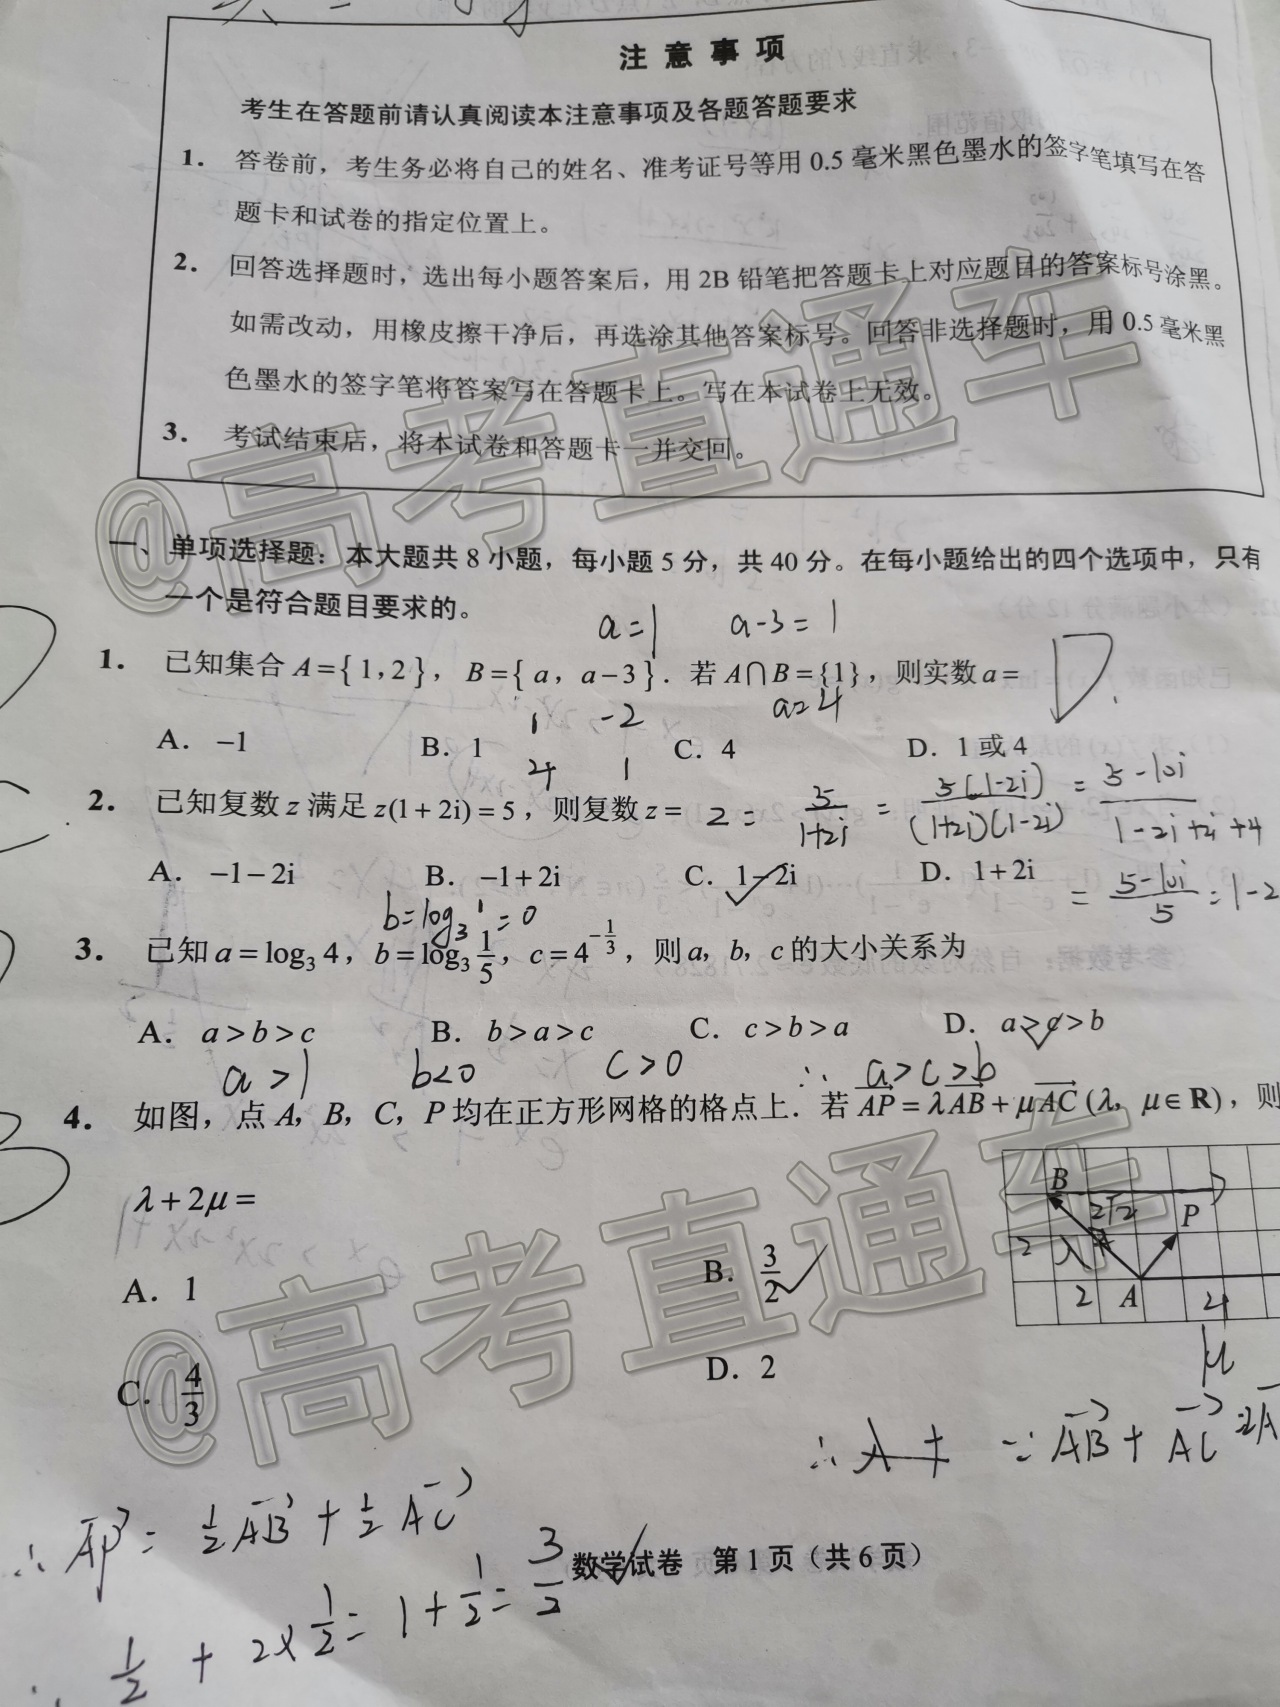 注意事项
考生在答题前请认真阅读本注意事项及各题答题要求
1. 答卷前，考生务必将自己的姓名、准考证号等用 0.5 毫米黑色墨水的签字笔填写在答
题卡和试卷的指定位置上。
2. 回答选择题时，选出每小题答案后，用 2B 铅笔把答题卡上对应题目的答案标号涂黑。
如需改动，用橡皮擦干净后，再选涂其他答案标号。回答非选择题时，用 0.5 毫米黑
色墨水的签字笔将答案写在答题卡上。写在本试卷上无效。
3. 考试结束后，将本试卷和答题卡一并交回。
@高考直通车
一、单项选择题：本大题共 8 小题，每小题 5 分，共 40 分。在每小题给出的四个选项中，只有
一个是符合题目要求的。
a=1 a-3=1
1. 已知集合 A={1,2}，B={a，a-3}．若 A∩B={1}，则实数 a= D.
1 -2 a=4
A. -1 B. 1 C. 4 D. 1 或 4
4 1
2. 已知复数 z 满足 z(1+2i)=5，则复数 z= z= 5/(1+2i) = 5(1-2i)/((1+2i)(1-2i)) = (5-10i)/(1-2i+2i+4)
A. -1-2i B. -1+2i C. 1-2i D. 1+2i = (5-10i)/5 = 1-2
b=log₃1=0
3. 已知 a=log₃4，b=log₃(1/5)，c=4^(-1/3)，则 a，b，c 的大小关系为
A. a>b>c B. b>a>c C. c>b>a D. a>c>b
a>1 b<0 c>0 ∴ a>c>b
4. 如图，点 A，B，C，P 均在正方形网格的格点上．若 AP=λAB+μAC (λ，μ∈R)，则
λ+2μ=
B 2√2 P
2 λ
2 A 4
μ
A. 1 B. 3/2
C. 4/3 D. 2
@高考直通车
∴ AP = 1/2 AB + 1/2 AC
1/2 + 2×1/2 = 1+1/2 = 3/2
数学试卷 第 1 页（共 6 页）